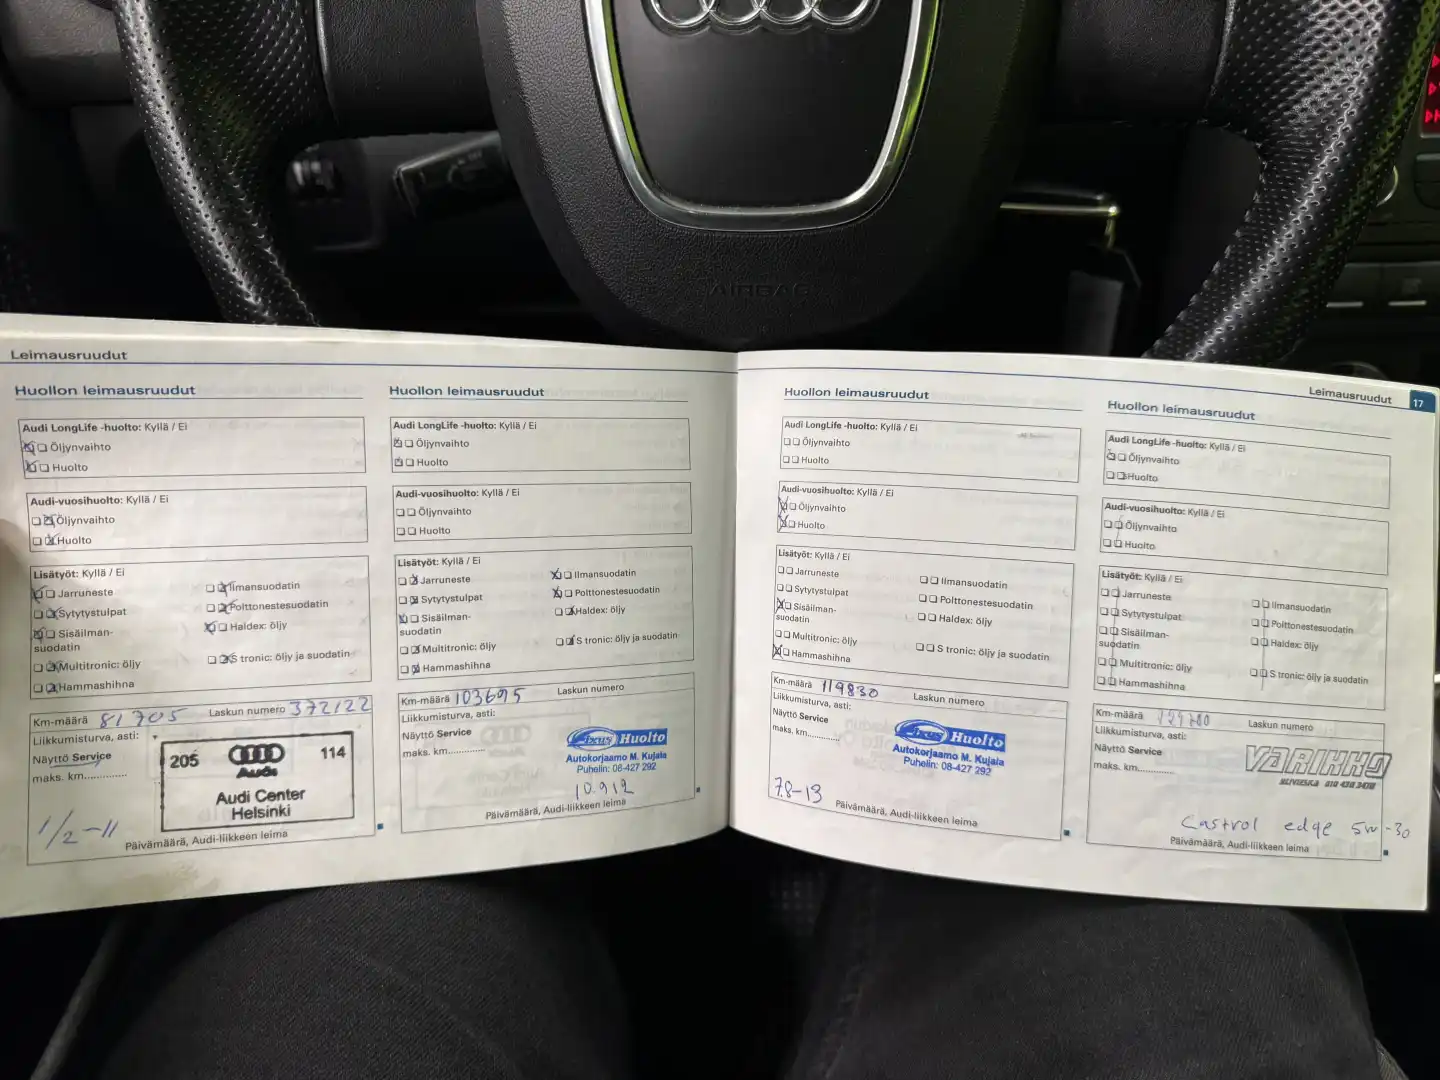 AIRBAG
Leimausruudut
Huollon leimausruudut
Audi LongLife -huolto: Kyllä / Ei
Öljynvaihto
Huolto
Audi-vuosihuolto: Kyllä / Ei
Öljynvaihto
Huolto
Lisätyöt: Kyllä / Ei
Jarruneste
Ilmansuodatin
Sytytystulpat
Polttonestesuodatin
Sisäilman-
suodatin
Haldex: öljy
Multitronic: öljy
S tronic: öljy ja suodatin
Hammashihna
Km-määrä 81705 Laskun numero 372122
Liikkumisturva, asti:
Näyttö Service
maks. km.............
205 Audi 114
Audi Center
Helsinki
1/2-11
Päivämäärä, Audi-liikkeen leima
Huollon leimausruudut
Audi LongLife -huolto: Kyllä / Ei
Öljynvaihto
Huolto
Audi-vuosihuolto: Kyllä / Ei
Öljynvaihto
Huolto
Lisätyöt: Kyllä / Ei
Jarruneste
Ilmansuodatin
Sytytystulpat
Polttonestesuodatin
Sisäilman-
suodatin
Haldex: öljy
Multitronic: öljy
S tronic: öljy ja suodatin
Hammashihna
Km-määrä 103695 Laskun numero
Liikkumisturva, asti:
Näyttö Service
maks. km.............
Fixus Huolto
Autokorjaamo M. Kujala
Puhelin: 08-427 292
10.912
Päivämäärä, Audi-liikkeen leima
Leimausruudut 17
Huollon leimausruudut
Audi LongLife -huolto: Kyllä / Ei
Öljynvaihto
Huolto
Audi-vuosihuolto: Kyllä / Ei
Öljynvaihto
Huolto
Lisätyöt: Kyllä / Ei
Jarruneste
Ilmansuodatin
Sytytystulpat
Polttonestesuodatin
Sisäilman-
suodatin
Haldex: öljy
Multitronic: öljy
S tronic: öljy ja suodatin
Hammashihna
Km-määrä 119830 Laskun numero
Liikkumisturva, asti:
Näyttö Service
maks. km.............
Fixus Huolto
Autokorjaamo M. Kujala
Puhelin: 08-427 292
7.8-13
Päivämäärä, Audi-liikkeen leima
Huollon leimausruudut
Audi LongLife -huolto: Kyllä / Ei
Öljynvaihto
Huolto
Audi-vuosihuolto: Kyllä / Ei
Öljynvaihto
Huolto
Lisätyöt: Kyllä / Ei
Jarruneste
Ilmansuodatin
Sytytystulpat
Polttonestesuodatin
Sisäilman-
suodatin
Haldex: öljy
Multitronic: öljy
S tronic: öljy ja suodatin
Hammashihna
Km-määrä Laskun numero
Liikkumisturva, asti:
Näyttö Service
maks. km.............
VARIKKO
Castrol edge 5w-30
Päivämäärä, Audi-liikkeen leima